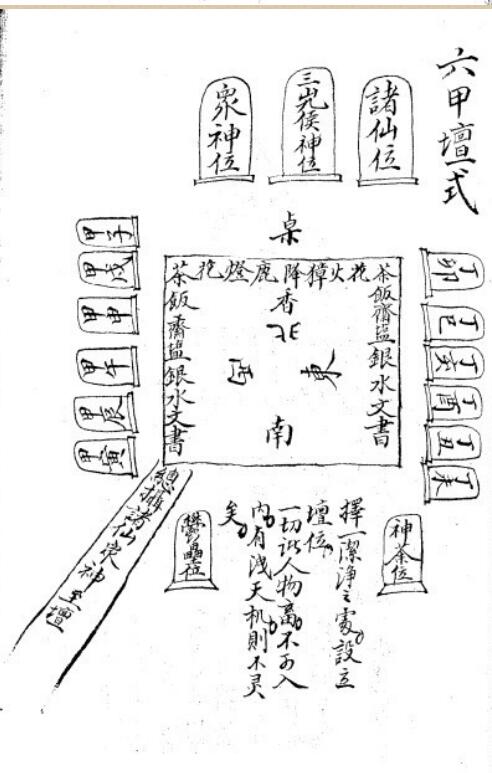 六甲壇式
諸仙位
三尧侯神位
眾神位
桌
茶花火獐降鹿燈花茶
香
飯齋塩銀水文書
飯齋塩銀水文書
北
東
西
南
丁卯
丁巳
丁亥
丁酉
丁丑
丁未
甲子
甲戌
甲申
甲午
甲辰
甲寅
神茶位
擇一潔淨之處設立
壇位
一切訨人物畜不可入
内有洩天机則不灵
矣
欝壘位
總攝諸仙眾神至壇